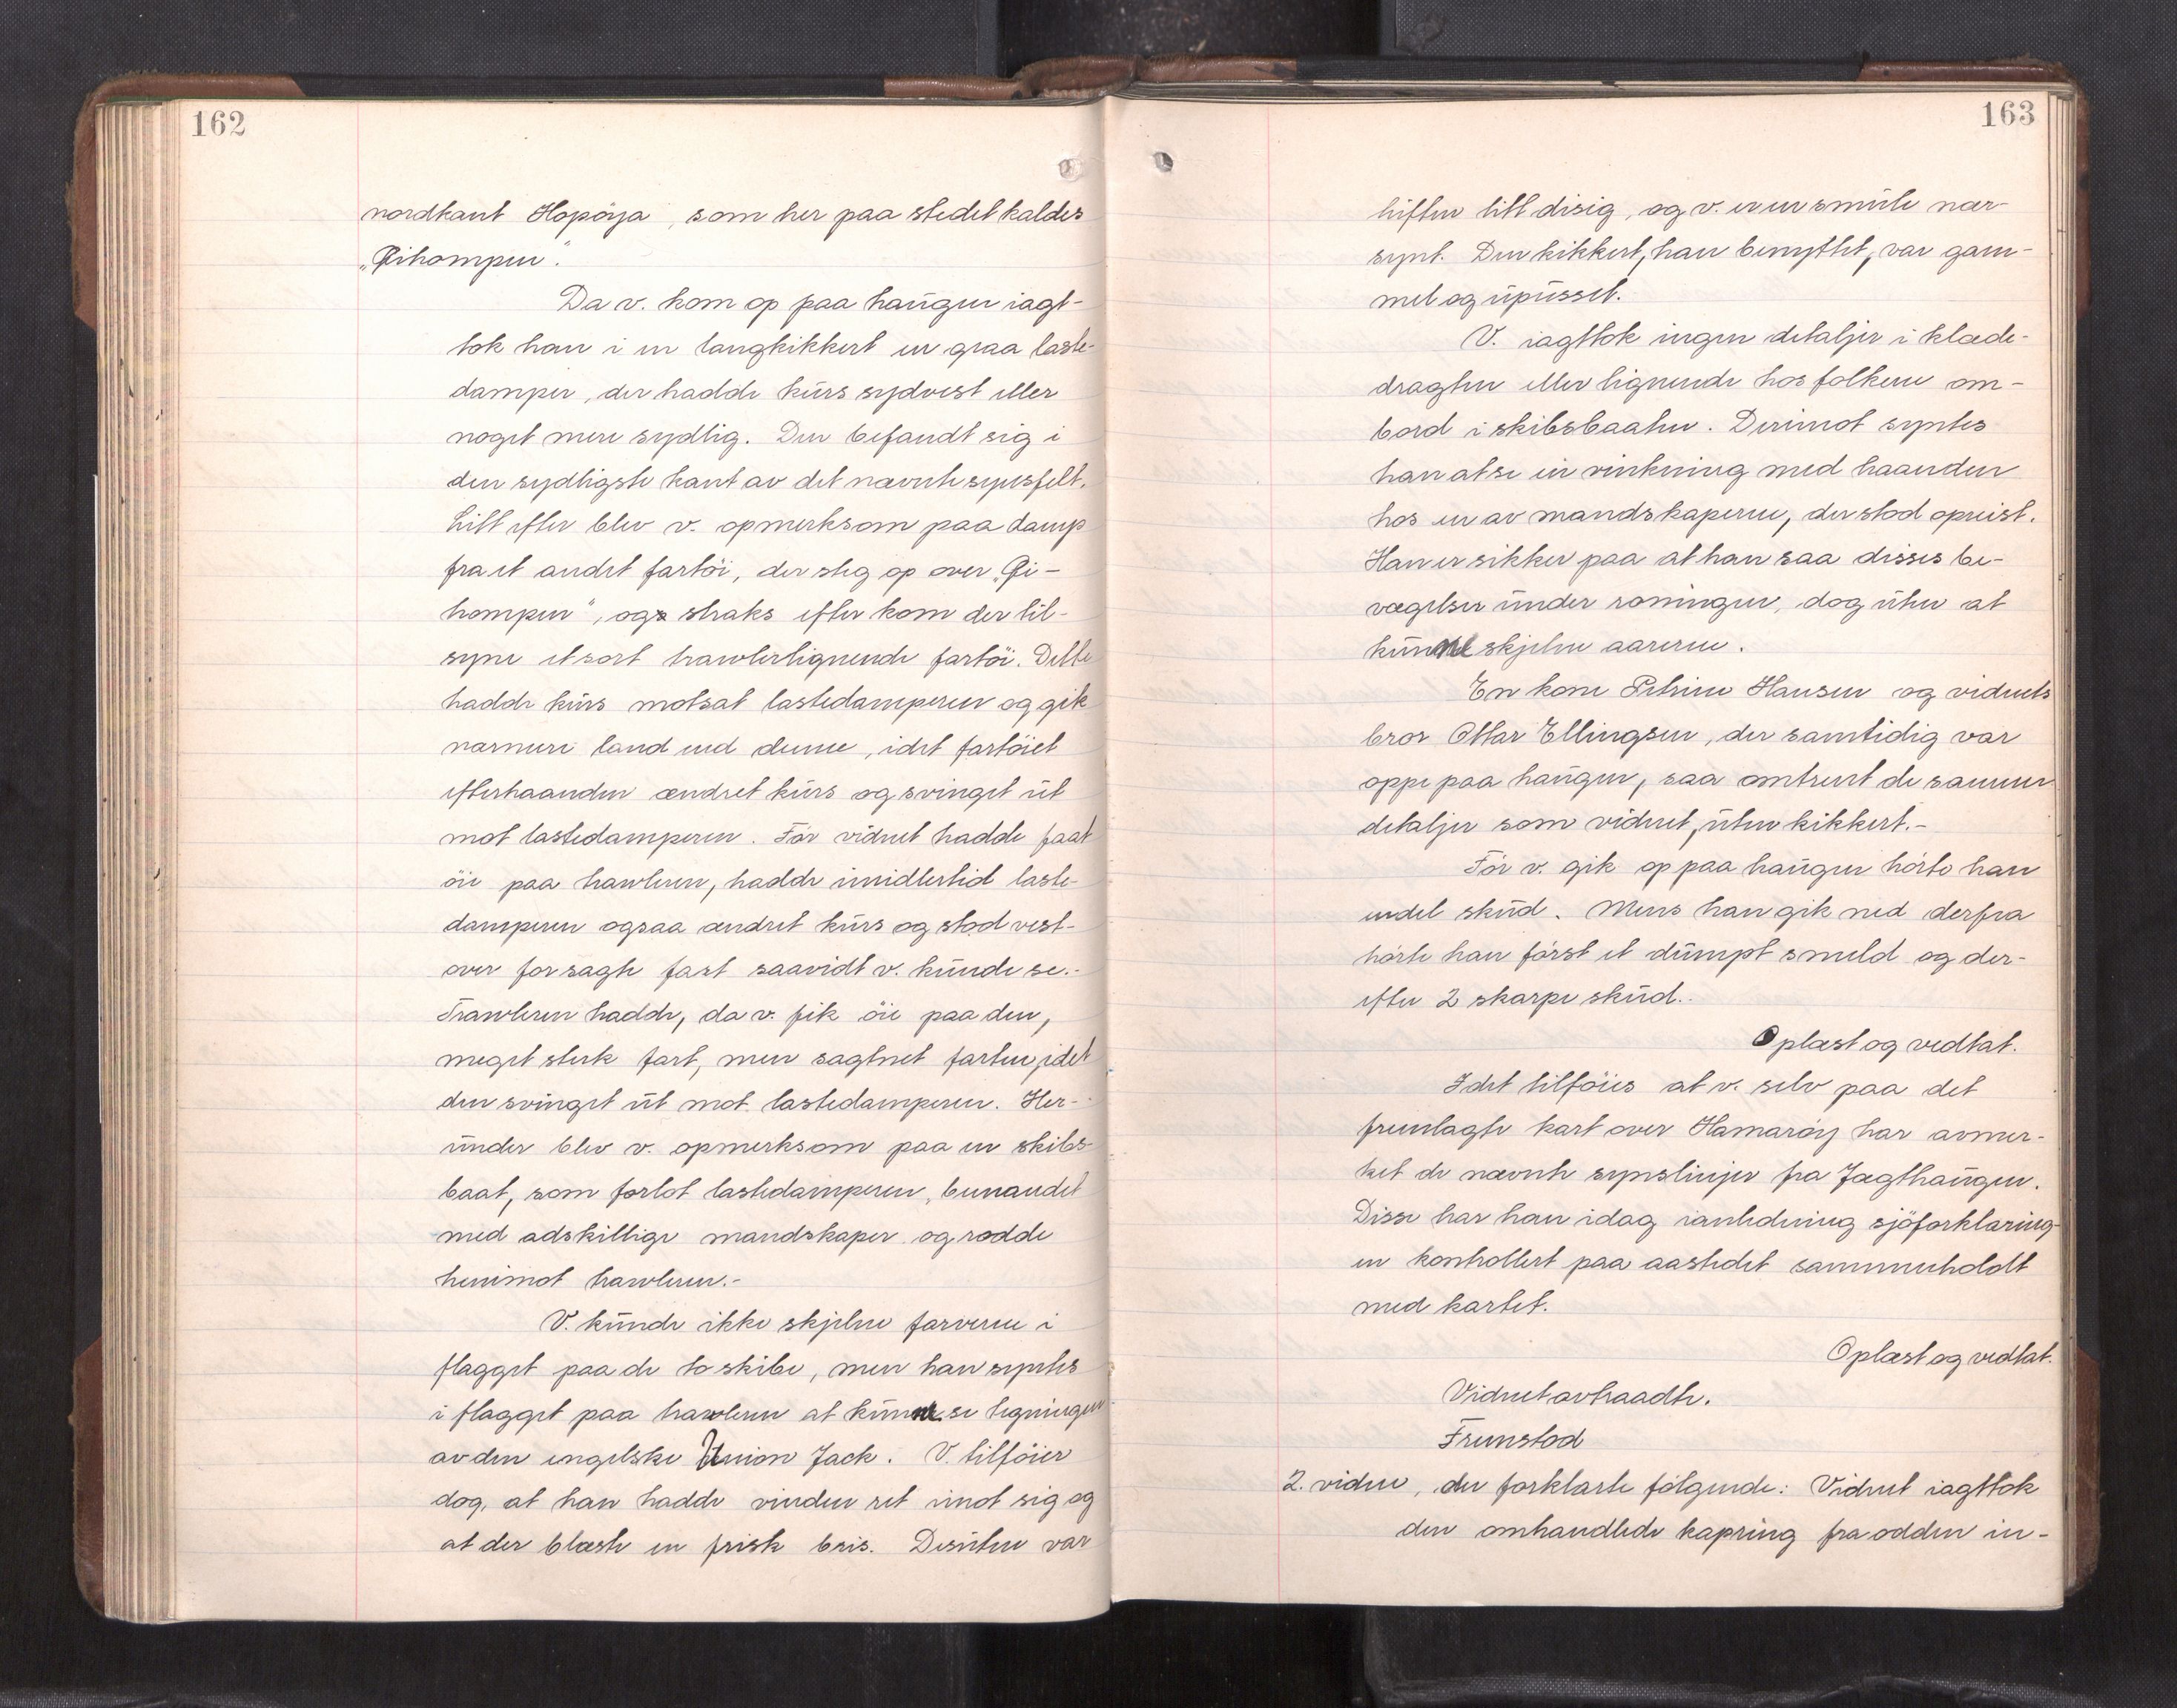 162
nordkant Hopöya, som her paa stedet kaldes
„Gihompen".
Da v. kom op paa haugen iagt-
tok han i en langkikkert en graa laste-
damper, der hadde kurs sydvest eller
noget mere sydlig. Den befandt sig i
den sydligste kant av det nævnte synsfelt.
Litt efter blev v. opmerksom paa damp
fra et andet fartöi, der steg op over „Gi-
hompen", og straks efter kom der til-
syne et sort trawlerlignende fartöi. Dette
hadde kurs motsat lastedamperen og gik
nærmere land end denne, idet fartöiet
efterhaanden ændret kurs og svinget ut
mot lastedamperen. För vidnet hadde faat
öie paa trawleren, hadde imidlertid laste-
damperen ogsaa ændret kurs og stod vest-
over for sagte fart saavidt v. kunde se.-
Trawleren hadde, da v. fik öie paa den,
meget sterk fart, men sagtnet farten, idet
den svinget ut mot lastedamperen. Her-
under blev v. opmerksom paa en skibs-
baat, som forlot lastedamperen, bemandet
med adskillige mandskaper og rodde
henimot trawleren.-
V. kunde ikke skjelne farverne i
flagget paa de to skibe, men han syntes
i flagget paa trawleren at kunne se tegningen
av den engelske Union Jack. V. tilföier
dog, at han hadde vinden ret imot sig og
at der blæste en frisk bris. Desuten var
163
luften litt disig, og v. er en smule nær-
synt. Den kikkert, han benyttet, var gam-
mel og upusset.
V. iagttok ingen detaljer i klæde-
dragten eller lignende hos folkene om-
bord i skibsbaaten. Derimot syntes
han at se en vinkning med haanden
hos en av mandskaperne, der stod opreist.
Han er sikker paa at han saa disses be-
vægelser under roningen, dog uten at
kunne skjelne aarerne.
En kone Petrine Hansen og vidnets
bror Ottar Ellingsen, der samtidig var
oppe paa haugen, saa omtrent de samme
detaljer som vidnet, uten kikkert.-
För v. gik op paa haugen hörte han
endel skud. Mens han gik ned derfra
hörte han först et dumpt smeld og der-
efter 2 skarpe skud.
Oplæst og vedtat.
Idet tilföies at v. selv paa det
fremlagte kart over Hamaröy har avmer-
ket de nævnte synslinjer fra Jagthaugen.
Disse har han idag i anledning sjöforklaring-
en kontrollert paa aastedet sammenholdt
med kartet.
Oplæst og vedtat.
Vidnet avtraadte.
Fremstod
2. vidne, der forklarte fölgende: Vidnet iagttok
den omhandlede kapring fra odden in-